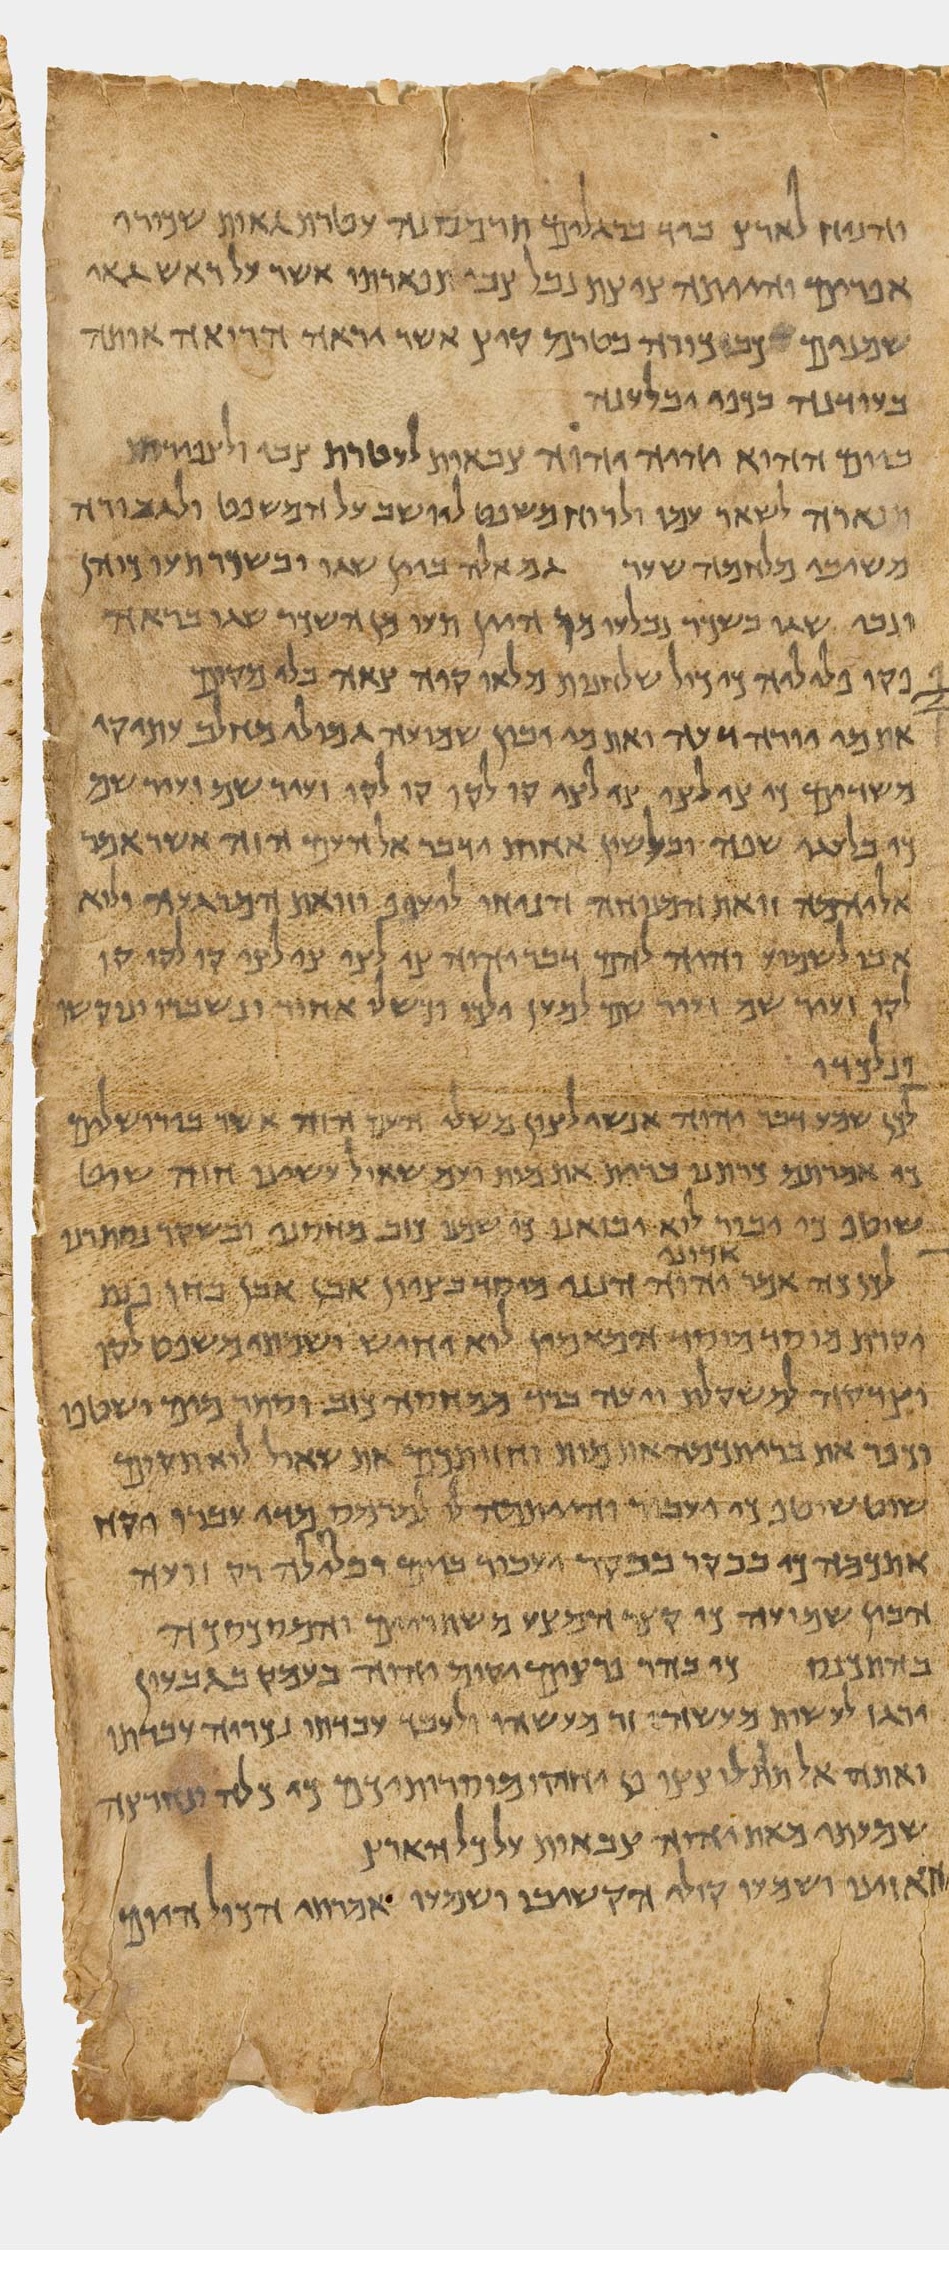 והניח לארץ ביד ברגלים תרמסנה עטרת גאות שכורי
אפרים והייתה ציצת נבל צבי תפארתו אשר על ראש גאי
שמנים כבכורה בטרם קיץ אשר יראה הרואה אותה
בעודנה בכפו יבלענה
ביום ההוא יהיה יהוה צבאות לעטרת צבי ולצפירת
תפארה לשאר עמו ולרוח משפט ליושב על המשפט ולגבורה
משיבי מלחמה שער גם אלה ביין שגו ובשכר תעו כוהן
ונביא שגו בשכר נבלעו מן היין תעו מן השכר שגו בראה
פקו פלילה כי כול שלחנות מלאו קיה צאה בלי מקום
את מי יורה דעה ואת מי יבין שמועה גמולי מחלב עתיקי
משדים כי צי לצי צי לצי קו לקו קו לקו זעיר שם זעיר שם
כי בלעגי שפה ובלשון אחרת ידבר אל העם הזה אשר אמר
אליהמה זואת המנוחה הניחו לעיף וזואת המרגעה ולוא
אבו לשמוע והיה להם דבר יהוה צי לצי צי לצי קו לקו קו
לקו זעיר שם זעיר שם למען ילכו וכשלו אחור ונשברו ונוקשו
ונלכדו
לכן שמעו דבר יהוה אנשי לצון משלי העם הזה אשר בירושלים
כי אמרתם כרתנו ברית את מות ועם שאול עשינו חזה שוט
שוטף כי יעבור לוא יבואנו כי שמנו כזב מחסנו ובשקר נסתרנו
אדוני
לכן כה אמר יהוה הנני מיסד בציון אבן אבן בחן פנת
יקרת מוסד מוסד המאמין לוא יחיש ושמתי משפט לקו
וצדקה למשקלת ויעה ברד מחסה כזב וסתר מים ישטפו
וכפר את בריתכמה את מות וחזותכם את שאול לוא תקום
שוט שוטף כי יעבור והייתמה לו למרמס מדי עברו יקח
אתכמה כי בבקר בבקר יעבור ביום ובלילה רק זועה
הבין שמועה כי קצר המצע משתריים והמסכסכה
כהתכנס כי כהר פרצים יקום יהוה בעמק בגבעון
ירגז לעשות מעשוהי זר מעשהו ולעבד עבדתו נכריה עבדתו
ואתם אל תתלוצצו פן יחזקו מוסריתיכם כי כלה ונחרצה
שמעתי מאת יהוה צבאות על כל הארץ
האזינו ושמעו קולי הקשיבו ושמעו אמרתי הכול היום